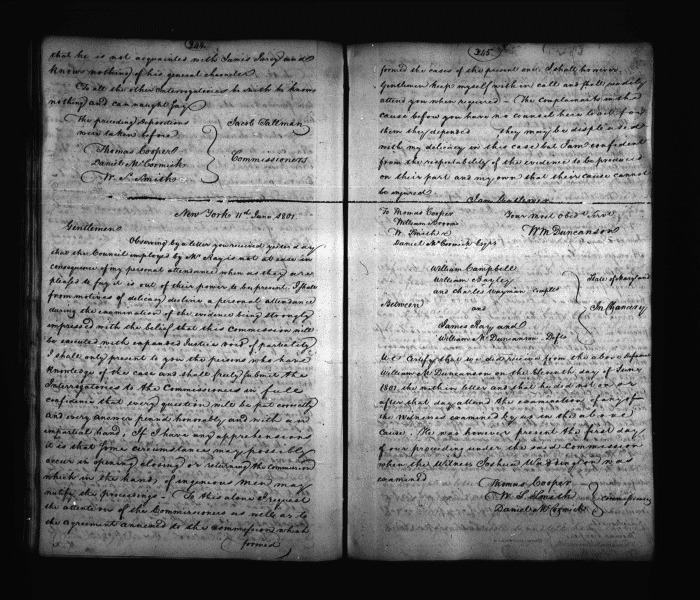 244.
that he is not acquainted with James Laray and
knows nothing of his general character
To all the other Interrogatories he saith he knows
nothing and can naught say
The preceding depositions
were taken before
Jacob Tallman
Thomas Cooper
Daniel McCormick
W. S. Smith
Commissioners
New York 11th June 1801
Gentlemen
Observing by a letter you received yesterday
that the Council employed by Mr Ray is not at ease in
consequence of my personal attendance when as they are
pleased to say it is out of their power to be present. I shall
from motives of delicacy decline a personal attendance
during the examination of the evidence being strongly
impressed with the belief that this Commission will
be executed with expanded Justice void of partiality
I shall only present to you the persons who have
knowledge of the case and shall freely submit the
Interrogatories to the Commissioners in full
confidence that every question will be put correctly
and every answer pen'd honorably and with an
impartial hand. If I have any apprehensions
it is that some circumstance may possibly
occur in opening closing or returning the Commission
which in the hands of ingenious men may
nullify the proceedings - To this alone I request
the attention of the Commissioners as well as to
the agreement annexed to the Commission which
formed
245
formed the cases of the present one. I shall however
Gentlemen keep myself within call and shall readily
attend you when required - The complainants in the
cause before you have no counsel here to act for
them they depended they may be displeased
with my delicacy in this case but I am confident
from the respectability of the evidence to be produced
on their part and my own that their cause cannot
be injured
I am Gentlemen
To Thomas Cooper
William
W. Smith &
Daniel McCormick Esqrs
Your most Obed. Servt
Wm Duncanson
William Campbell
William Bayley
and Charles Wayman Complts
Between
and
James Ray and
William M. Duncanson Defts
State of Maryland
In Chancery
We Certify that we did receive from the above Defendant
William M. Duncanson on the eleventh day of June
1801 the within letter and that he did not on or
after that day attend the examination of any of
the witnesses examined by us in the above
cause. He was however present the first day
of our proceeding under the said Commission
when the witness Joshua Waddington was
examined
Thomas Cooper
W. S. Smith
Daniel McCormick
Commissioners